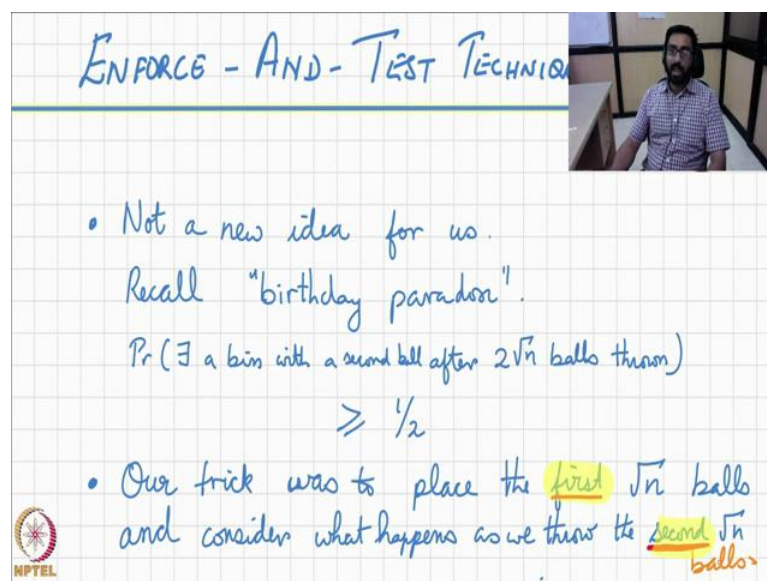 ENFORCE - AND - TEST TECHNIQ
• Not a new idea for us.
Recall "birthday paradox".
Pr (∃ a bin with a second ball after 2√n balls thrown)
≥ 1/2
• Our trick was to place the first √n balls
and consider what happens as we throw the second √n
balls.
NPTEL